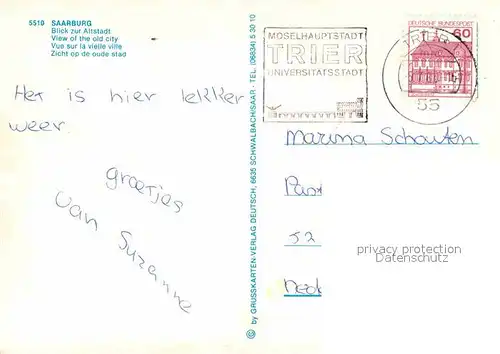 5510 SAARBURG
Blick zur Altstadt
View of the old city
Vue sur la vieille ville
Zicht op de oude stad
Het is hier lekker
weer.
groetjes
van Suzanne
© by GRUSSKARTEN-VERLAG DEUTSCH, 6635 SCHWALBACH/SAAR - TEL. (06834) 5 30 10
MOSELHAUPTSTADT
TRIER
UNIVERSITÄTSSTADT
DEUTSCHE BUNDESPOST
60
TRIER
55
Marina Schouten
52
privacy protection
Datenschutz